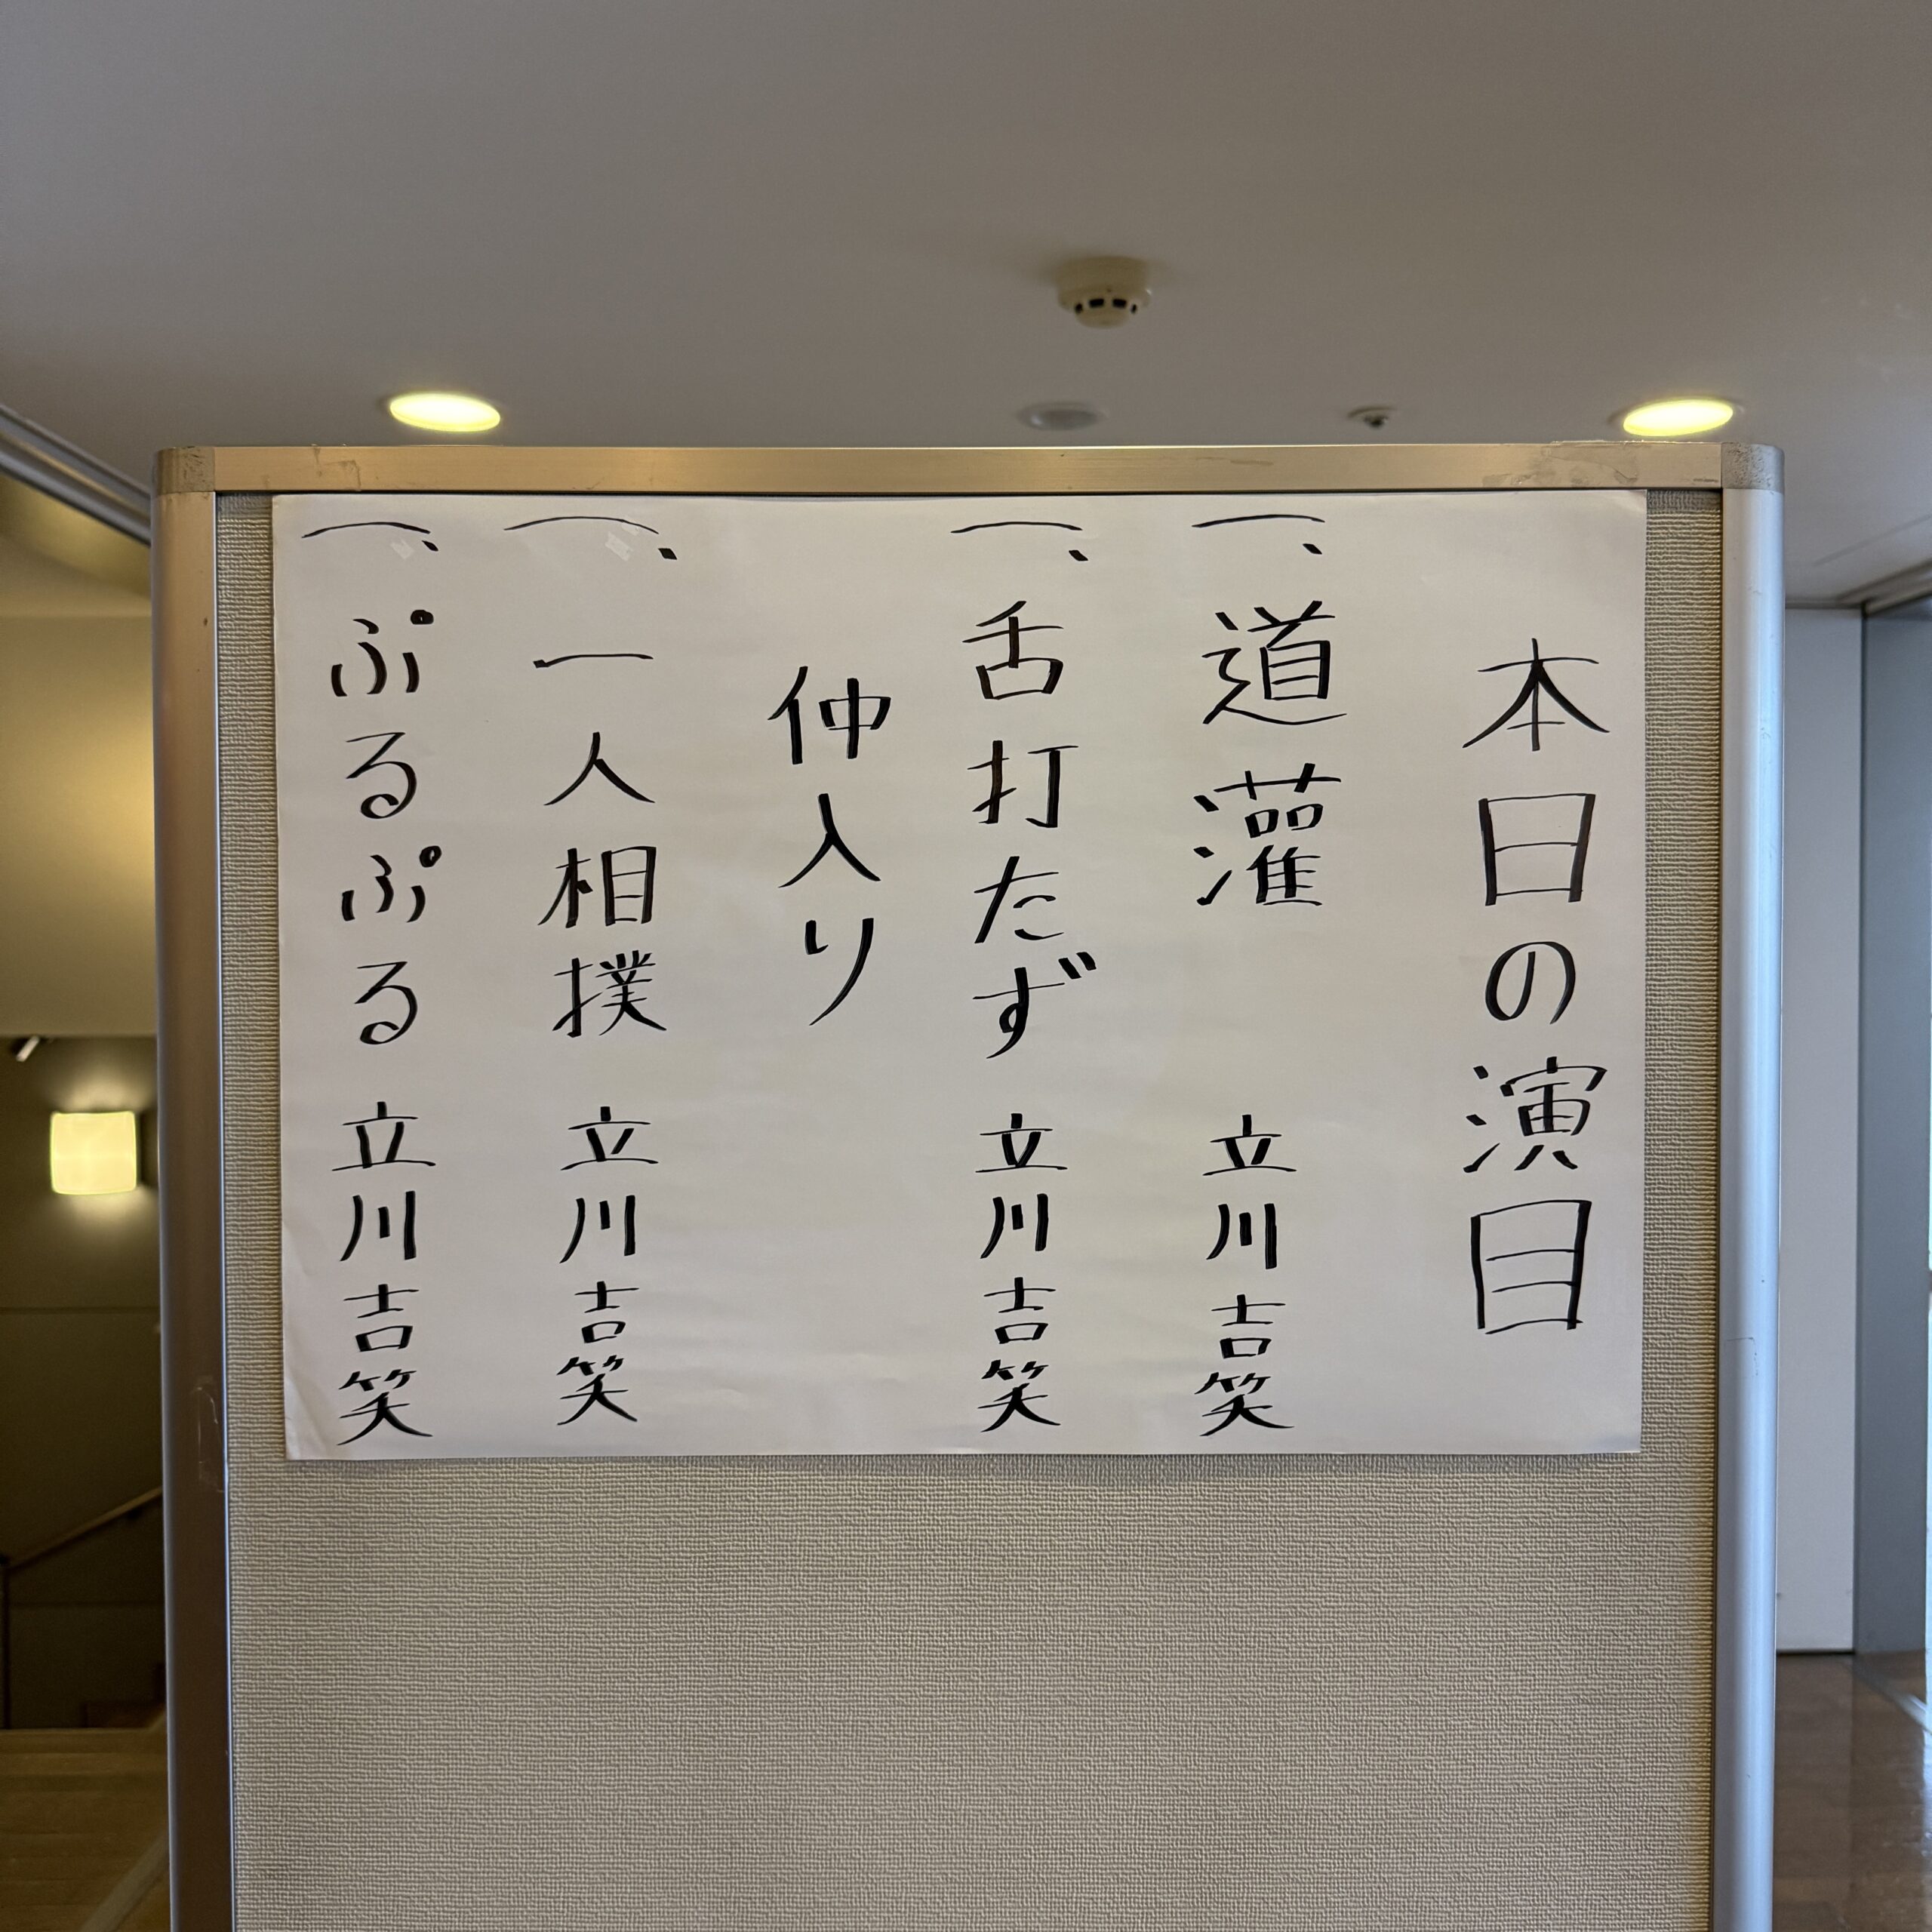 本日の演目
一、道灌 立川吉笑
一、舌打たず 立川吉笑
仲入り
一、一人相撲 立川吉笑
一、ぷるぷる 立川吉笑